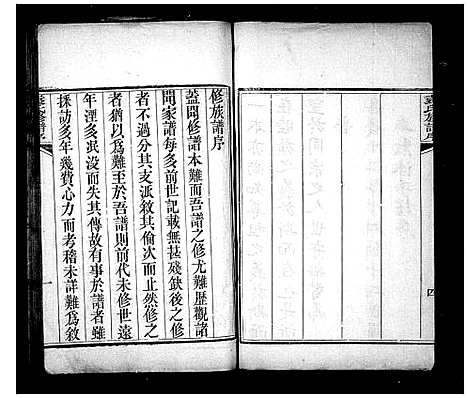 修族譜序
蓋聞修譜本難而吾譜之修尤難歷觀諸
聞家譜每多前世記載無甚殘缺後之修
者不過分其支派敘其倫次而止然修之
者猶以為難至於吾譜則前代未修世遠
年湮多泯没而失其傳故有事於譜者雖
採訪多年幾費心力而考稽未詳難為敘
氏族譜序
四
一